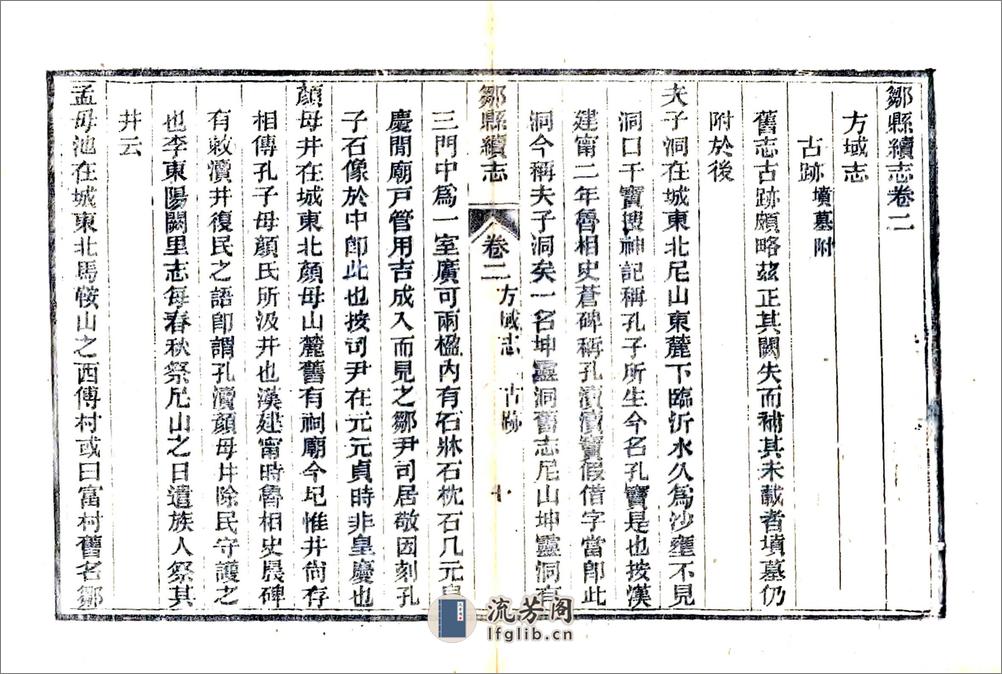 鄒縣續志卷二
方域志
古跡 墳墓附
舊志古跡頗略茲正其闕失而補其未載者墳墓仍
附於後
夫子洞在城東北尼山東麓下臨沂水久爲沙壅不見
洞口干寶搜神記稱孔子所生今名孔竇是也按漢
建甯二年魯相史蒼碑稱孔瀆瀆竇假借字當卽此
洞今稱夫子洞矣一名坤靈洞舊志尼山坤靈洞有
鄒縣續志 卷二 方域志 古跡 十
三門中爲一室廣可兩楹內有石牀石枕石几元皇
慶間廟戸管用吉成入而見之鄒尹司居敬因刻孔
子石像於中卽此也按司尹在元元貞時非皇慶也
顏母井在城東北顏母山麓舊有祠廟今圮惟井尙存
相傳孔子母顏氏所汲井也漢建甯時魯相史晨碑
有敕瀆井復民之語卽謂孔瀆顏母井除民守護之
也李東陽闕里志每春秋祭尼山之日遣族人祭其
井云
孟母池在城東北馬鞍山之西傅村或曰富村舊名鄒
流芳阁
lfglib.cn